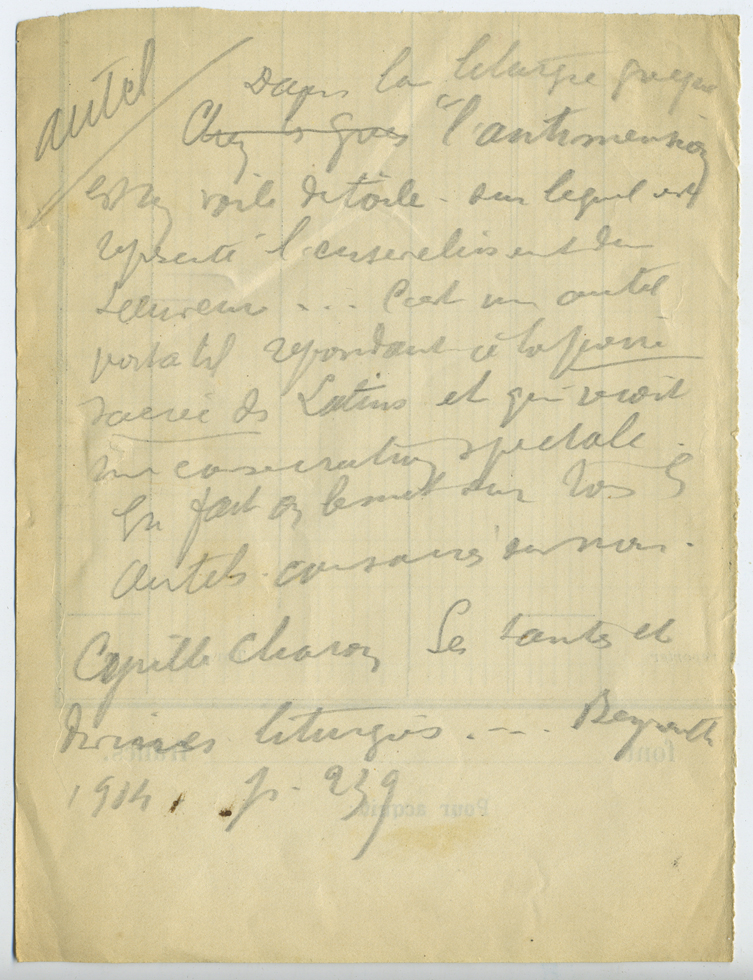 autel
Dans la liturgie grecque
Chez les Grecs "l'antimension
est un voile de toile - sur lequel est
représenté l'ensevelissement du
Sauveur ... C'est un autel
portatif répondant à la pierre
sacrée des Latins et qui reçoit
une consécration spéciale.
En fait on le met sur tous les
autels consacrés ou non.
Cyrille Charon Les saintes et
divines liturgies .... Beyrouth
1904, p. 239
font francs.
Pour acquit